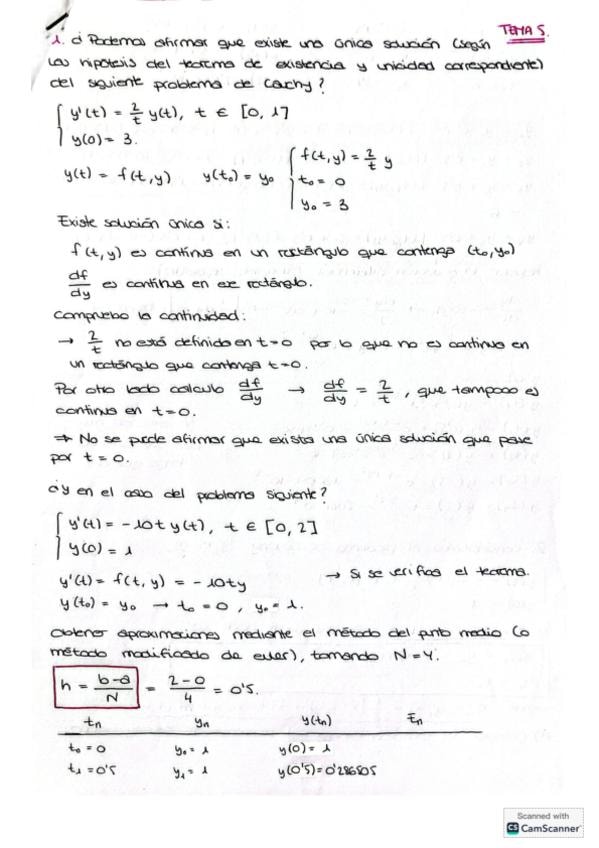 TEMA 5.
1. ¿Podemos afirmar que existe una única solución (según
las hipótesis del teorema de existencia y unicidad correspondiente)
del siguiente problema de Cachy?
{ y'(t) = 2/t y(t), t ∈ [0, 1]
y(0) = 3.
y(t) = f(t, y) y(t₀) = y₀ { f(t, y) = 2/t y
t₀ = 0
y₀ = 3
Existe solución única si:
f(t, y) es continua en un rectángulo que contenga (t₀, y₀)
df/dy es continua en ese rectángulo.
Compruebo la continuidad:
→ 2/t no está definida en t = 0 por lo que no es continua en
un rectángulo que contenga t = 0.
Por otro lado calculo df/dy → df/dy = 2/t, que tampoco es
continua en t = 0.
⇒ No se puede afirmar que exista una única solución que pase
por t = 0.
¿y en el caso del problema siguiente?
{ y'(t) = -10t y(t), t ∈ [0, 2]
y(0) = 1
y'(t) = f(t, y) = -10ty → Si se verifica el teorema.
y(t₀) = y₀ → t₀ = 0, y₀ = 1.
Obtener aproximaciones mediante el método del punto medio (o
método modificado de euler), tomando N = 4.
h = b-a/N = 2-0/4 = 0'5.
tn yn y(tn) En
t₀ = 0 y₀ = 1 y(0) = 1
t₁ = 0'5 y₁ = 1 y(0'5) = 0'286505
Scanned with
CS CamScanner